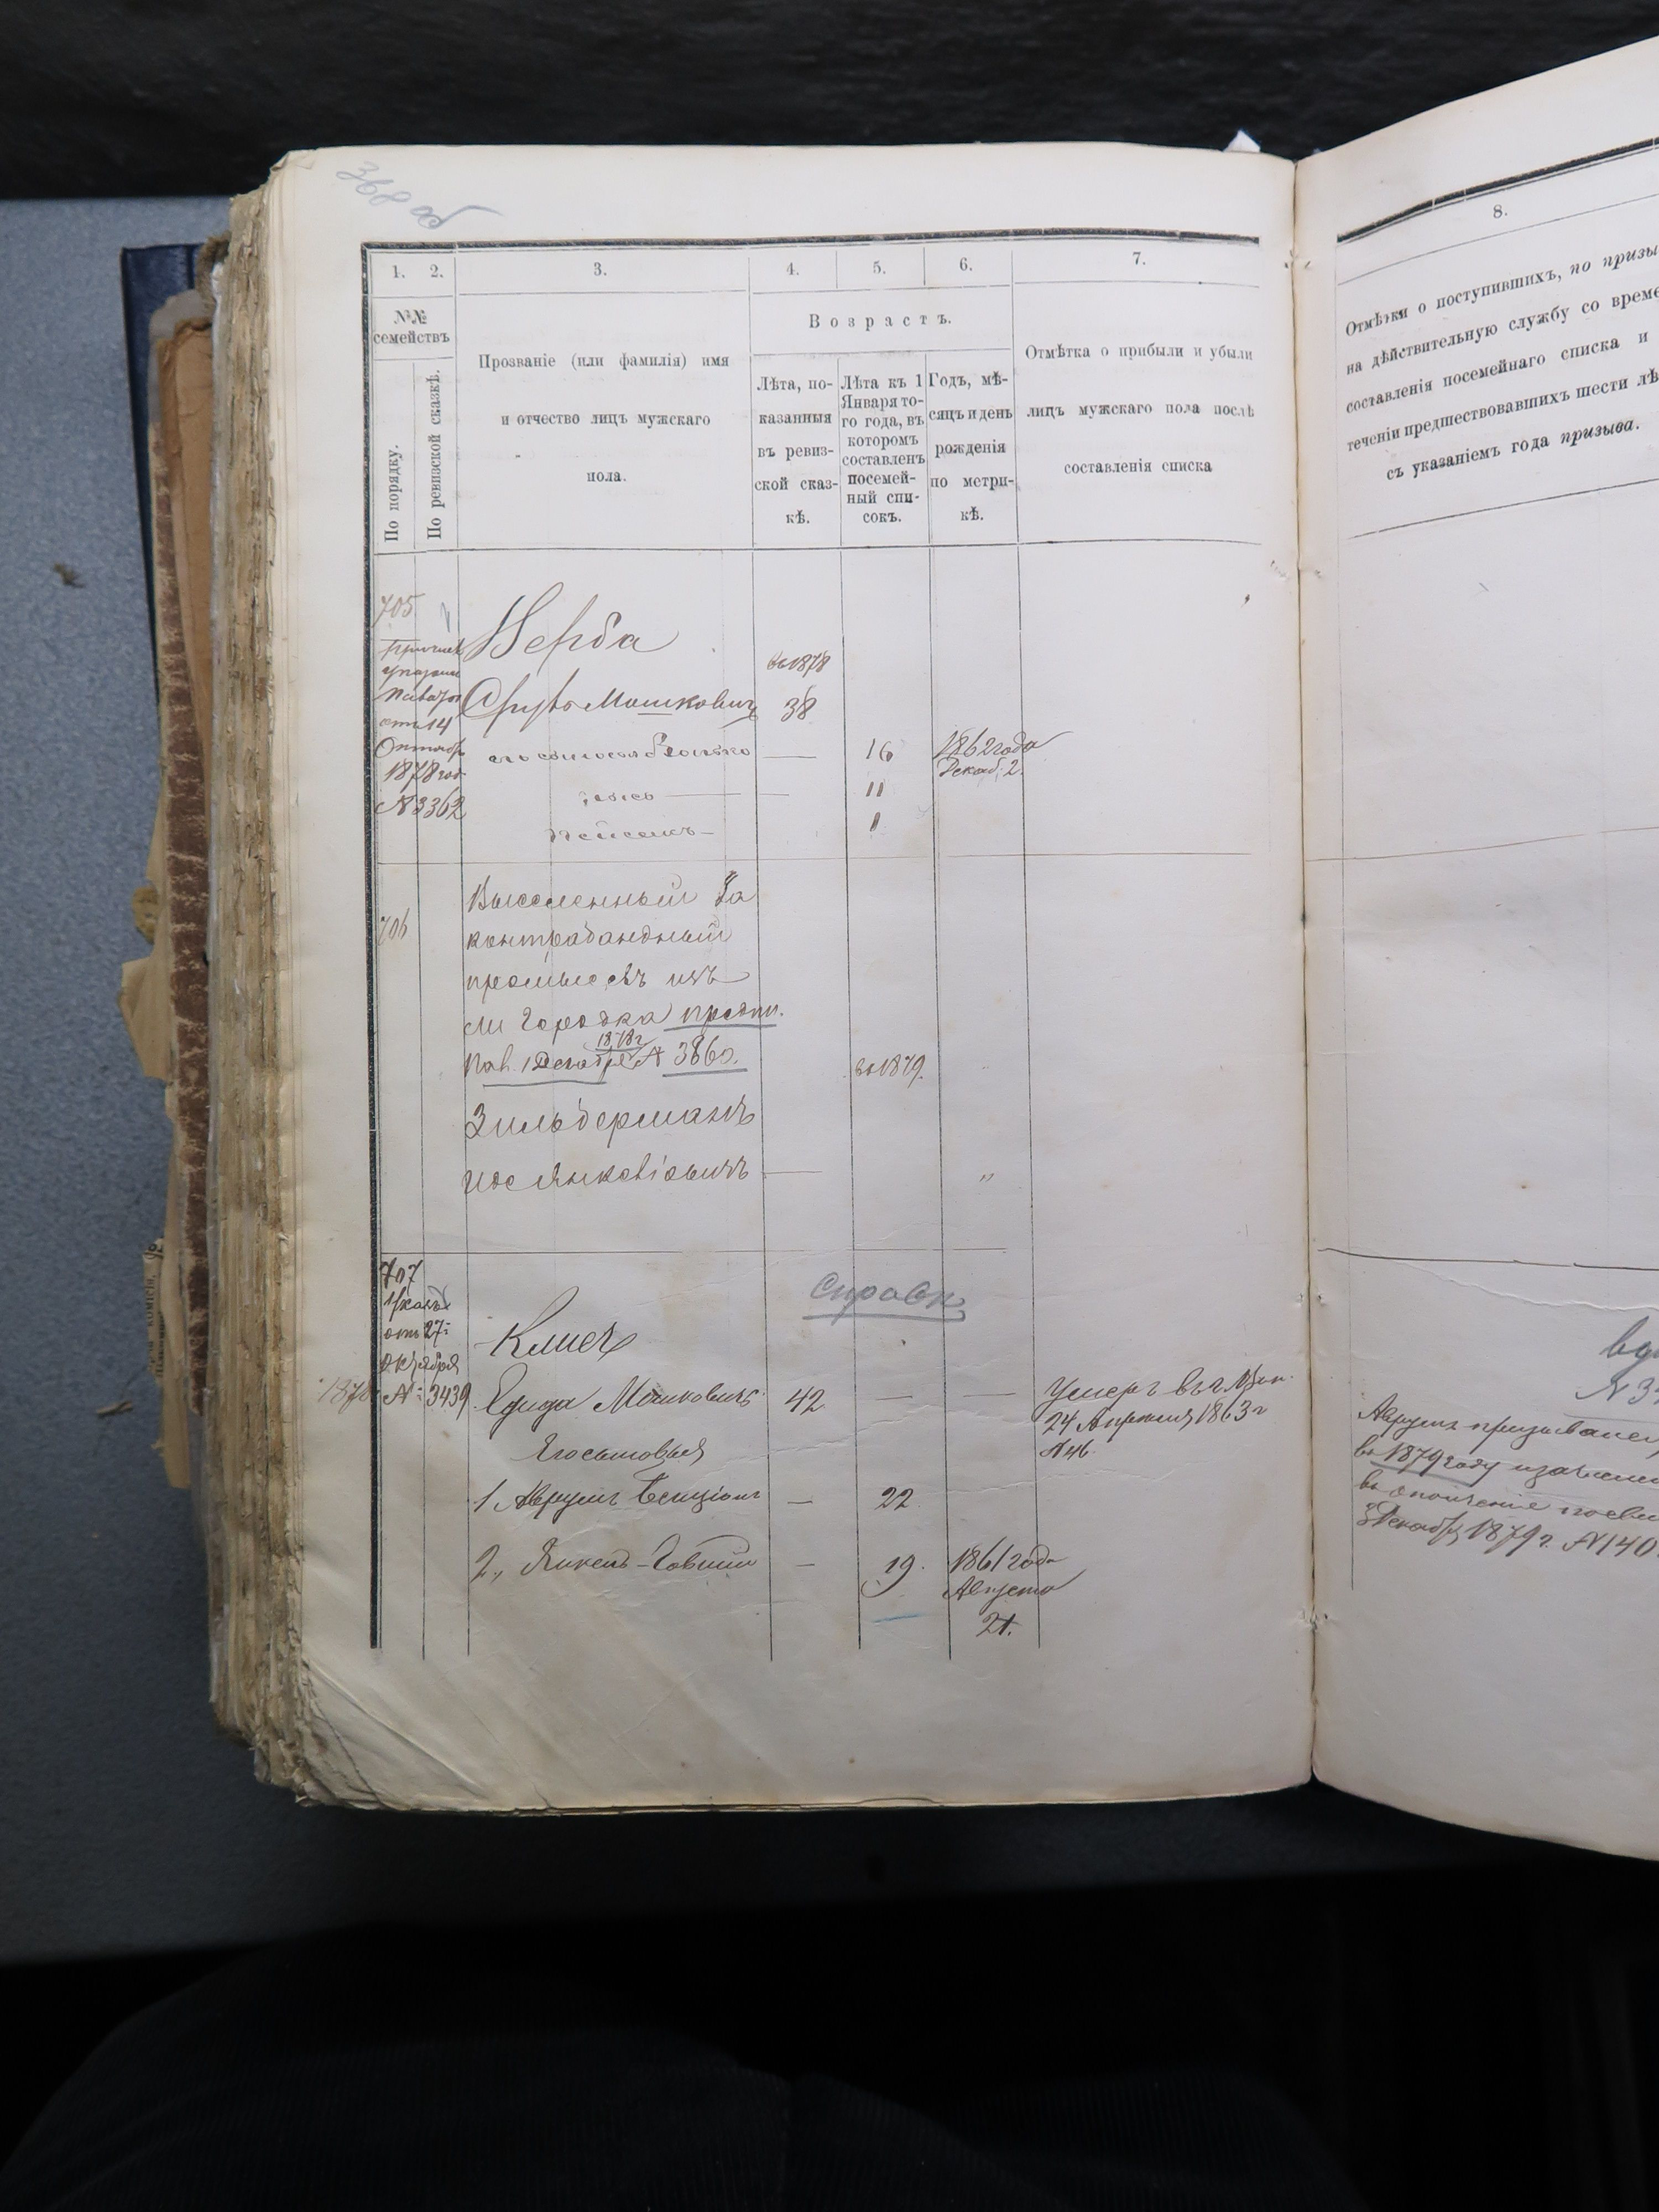 368 об
1.
2.
3.
4.
5.
6.
7.
№№
семействъ
По порядку.
По ревизской сказкѣ.
Прозваніе (или фамилія) имя
и отчество лицъ мужскаго
пола.
Возрастъ.
Лѣта, по-
казанныя
въ ревиз-
ской сказ-
кѣ.
Лѣта къ 1
Января то-
го года, въ
которомъ
составленъ
посемей-
ный спи-
сокъ.
Годъ, мѣ-
сяцъ и день
рожденія
по метри-
кѣ.
Отмѣтка о прибыли и убыли
лицъ мужскаго пола послѣ
составленія списка
705
отъ 14
Октября
1878 год
№3362
Верба
Мошковичъ
въ 1878
38
его сыновья
16
1862 года
Декаб. 2.
11
706
Выселенный За
контрабандный
промыселъ изъ
м. Городка предпи.
1878 г
Пал. 1 Декабря № 3860.
въ 1879.
Зильберманъ
707
Указъ
отъ 27
Октября
1878 № 3439
Справк
Клигеръ
Мошковичъ
42
Умеръ въ г.
24 Апрѣля 1863 г
№ 46.
Его сыновья
1 Аврумъ Бенціонъ
22
2,
19.
1861 года
Августа
21.
8.
Отмѣтки о поступившихъ, по призы
на дѣйствительную службу со време
составленія посемейнаго списка и
теченіи предшествовавшихъ шести лѣ
съ указаніемъ года призыва.
Аврумъ призывался
въ 1879 году и зачислен
въ ополченіе
3 Декабря 1879 г. №140